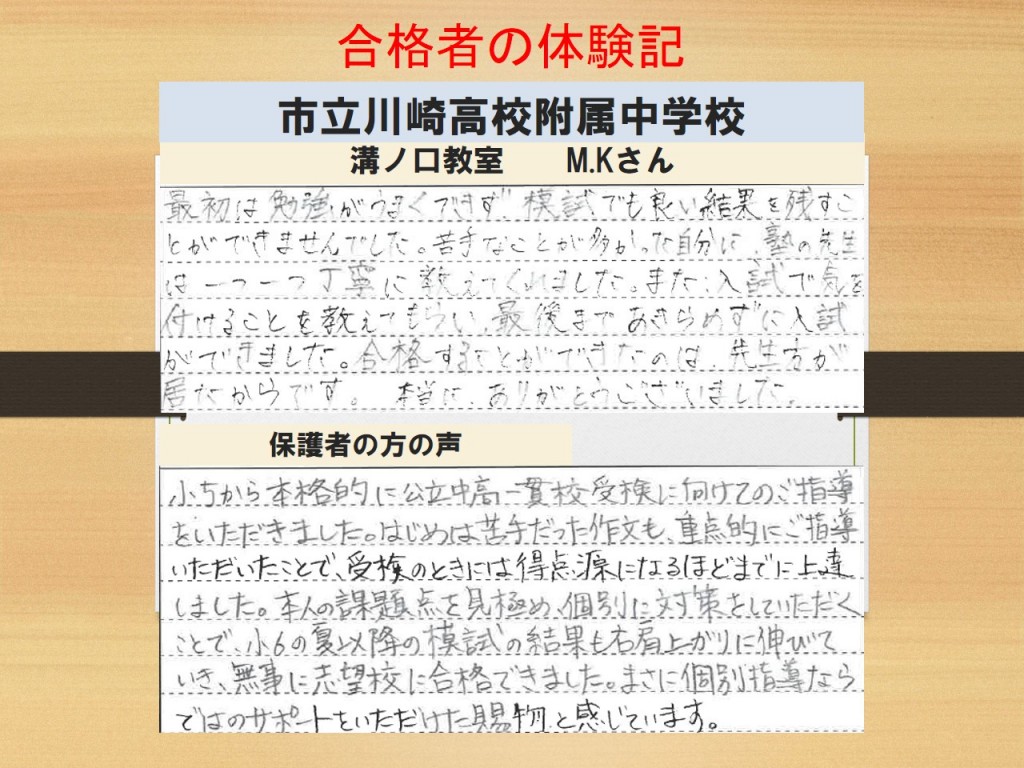 合格者の体験記
市立川崎高校附属中学校
溝ノ口教室　M.Kさん
最初は勉強がうまくできず模試でも良い結果を残すこ
とができませんでした。苦手なことが多かった自分に、塾の先生
は一つ一つ丁寧に教えてくれました。また、入試で気を
付けることを教えてもらい、最後まであきらめずに入試
ができました。合格することができたのは、先生方が
居たからです。本当に、ありがとうございました。
保護者の方の声
小5から本格的に公立中高一貫校受検に向けてのご指導
をいただきました。はじめは苦手だった作文も、重点的にご指導
いただいたことで、受検のときには得点源になるほどまでに上達
しました。本人の課題点を見極め、個別に対策をしていただく
ことで、小6の夏以降の模試の結果も右肩上がりに伸びて
いき、無事に志望校に合格できました。まさに個別指導なら
ではのサポートをいただけた賜物と感じています。